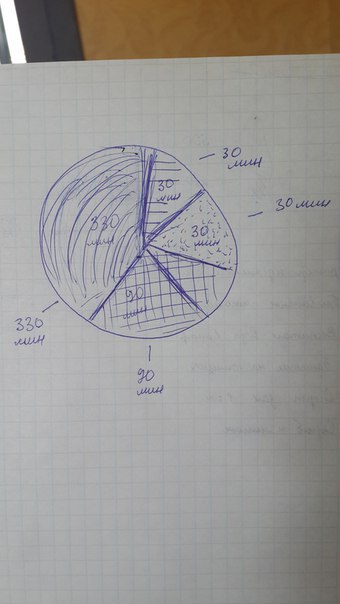 30
мин
30
мин
30 мин
30
мин
330
мин
90
мин
330
мин
90
мин